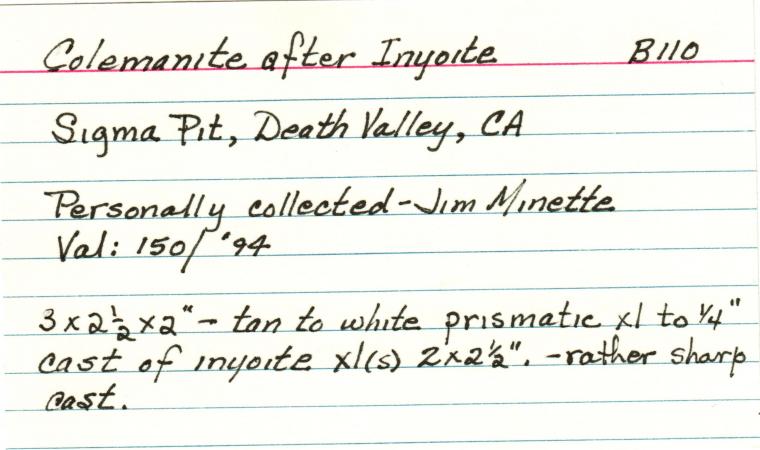 Colemanite after Inyoite B110
Sigma Pit, Death Valley, CA
Personally collected - Jim Minette
Val: 150/ '94
3 x 2 1/2 x 2" - tan to white prismatic xl to 1/4"
cast of inyoite xl(s) 2x2 1/2". - rather sharp
cast.